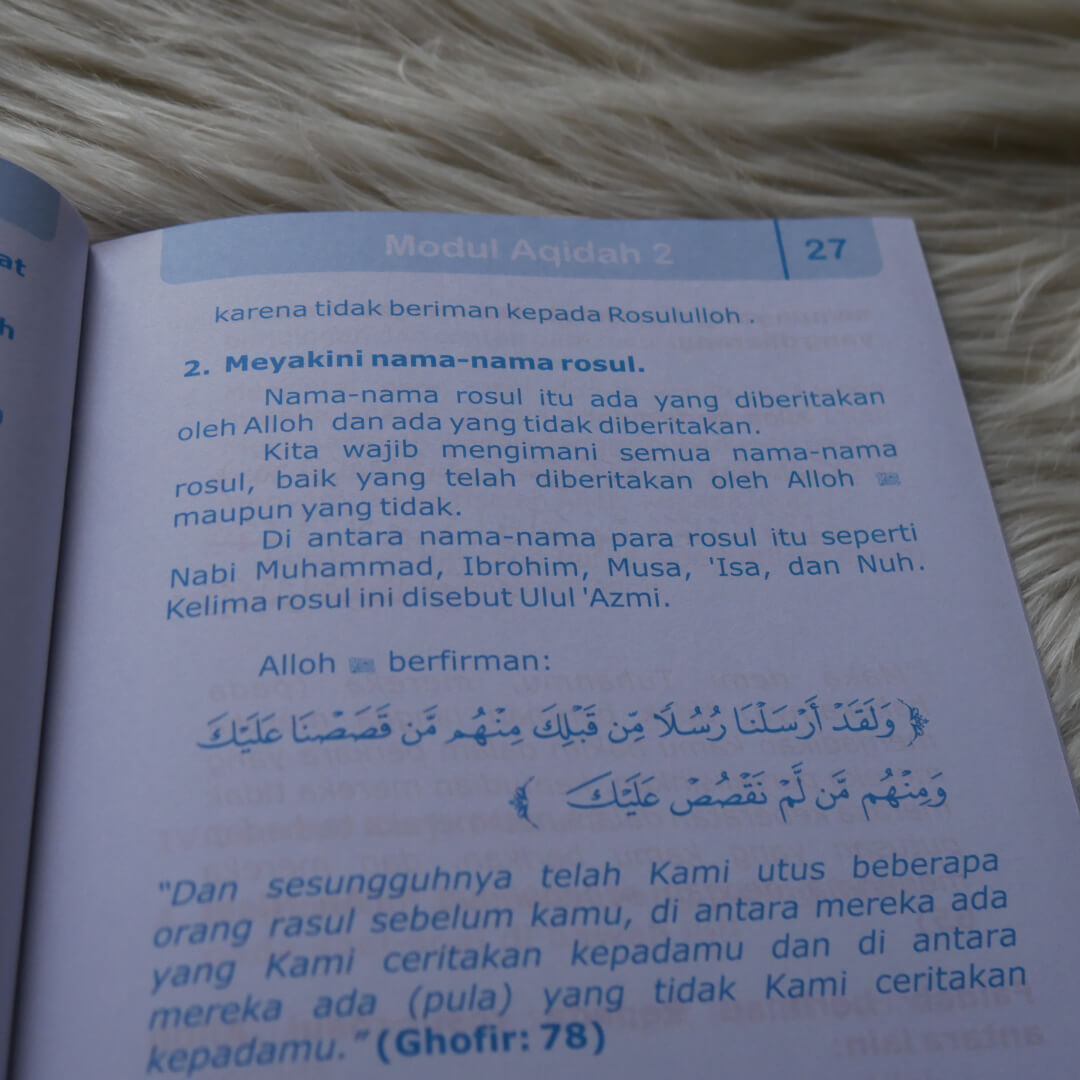 at
h
Modul Aqidah 2 27
karena tidak beriman kepada Rosululloh .
2. Meyakini nama-nama rosul.
Nama-nama rosul itu ada yang diberitakan
oleh Alloh dan ada yang tidak diberitakan.
Kita wajib mengimani semua nama-nama
rosul, baik yang telah diberitakan oleh Alloh
maupun yang tidak.
Di antara nama-nama para rosul itu seperti
Nabi Muhammad, Ibrohim, Musa, 'Isa, dan Nuh.
Kelima rosul ini disebut Ulul 'Azmi.
Alloh berfirman:
﴿ وَلَقَدْ أَرْسَلْنَا رُسُلًا مِّن قَبْلِكَ مِنْهُم مَّن قَصَصْنَا عَلَيْكَ
وَمِنْهُم مَّن لَّمْ نَقْصُصْ عَلَيْكَ ﴾
"Dan sesungguhnya telah Kami utus beberapa
orang rasul sebelum kamu, di antara mereka ada
yang Kami ceritakan kepadamu dan di antara
mereka ada (pula) yang tidak Kami ceritakan
kepadamu." (Ghofir: 78)